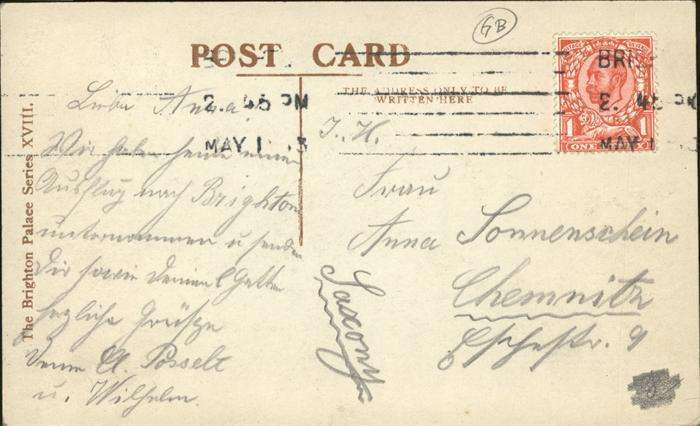 GB
POST CARD
THE ADDRESS ONLY TO BE
WRITTEN HERE
BRI
2. 45 PM
MAY 1
2. 45 PM
MAY 1 3
1 1
ONE
The Brighton Palace Series XVIII.
Liebe Anna
Wir haben heute einen
Ausflug nach Brighton
unternommen u senden
Dir sowie Deinem Gatten
herzliche Grüsse
Posselt
u. Wilhelm.
Frau
Anna Sonnenschein
Chemnitz
9
Saxony